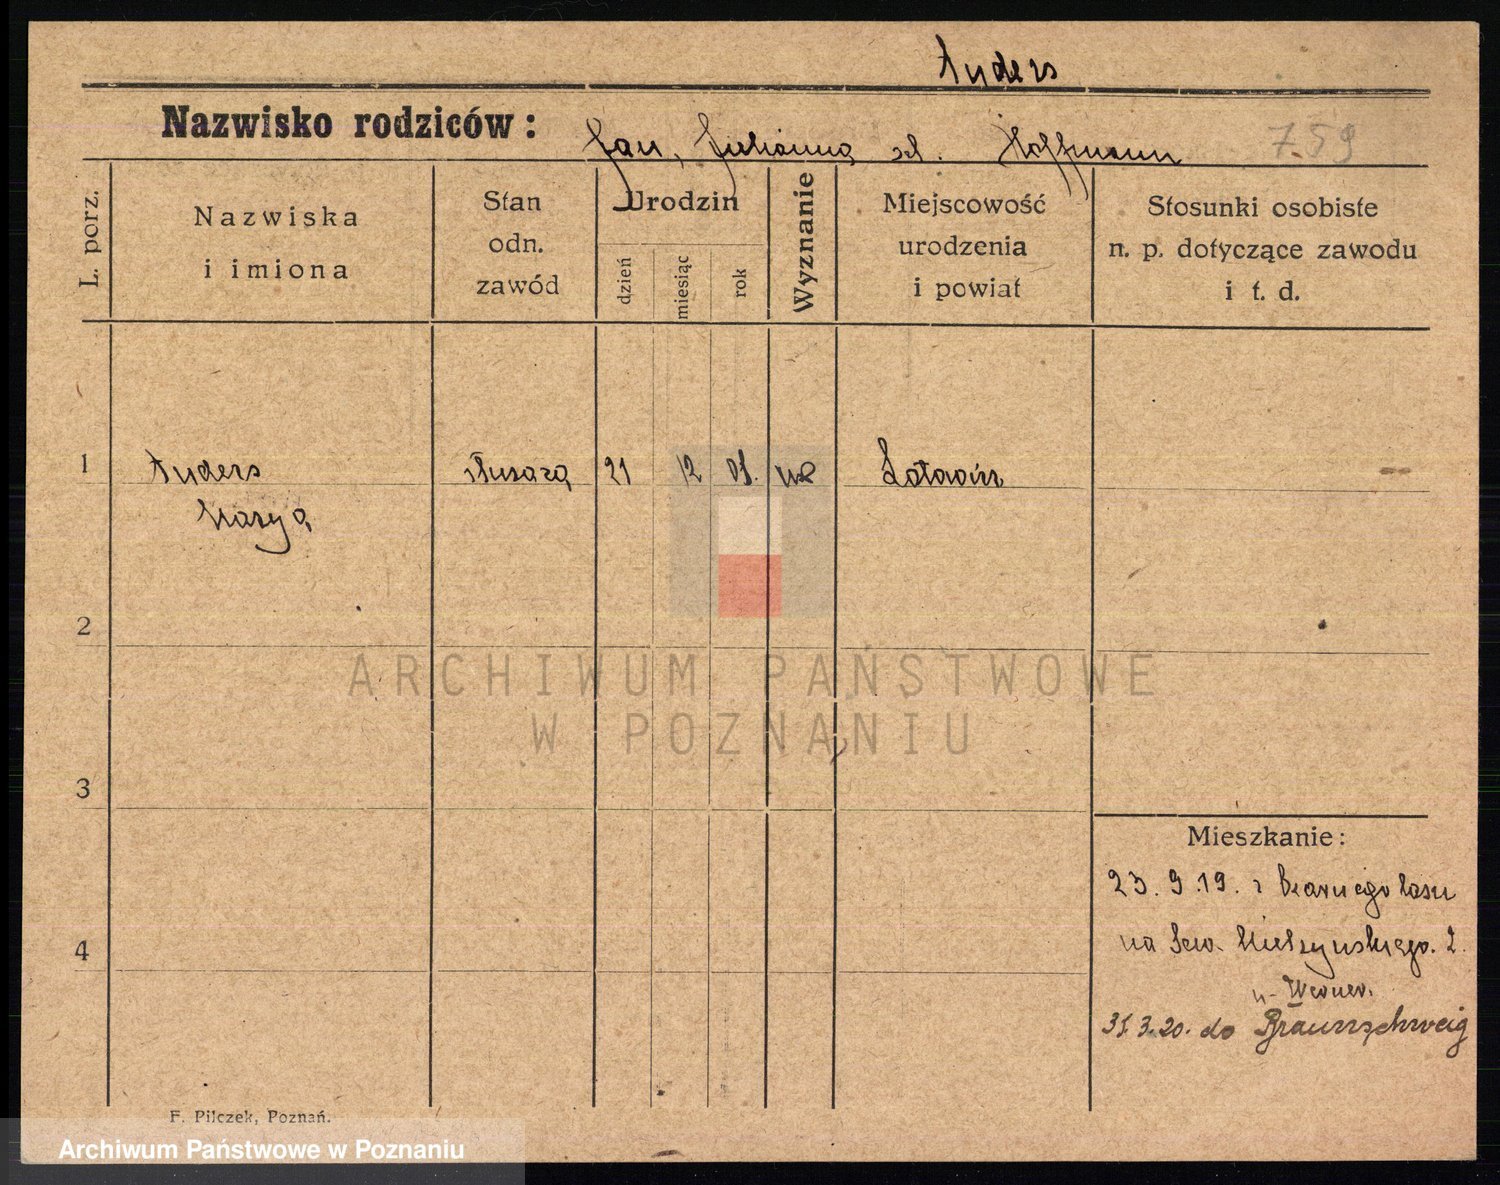 Anders
Nazwisko rodziców: Jan, Julianna zd. Hoffmann 759
L. porz.
Nazwiska i imiona
Stan odn. zawód
Urodzin
dzień
miesiąc
rok
Wyznanie
Miejscowość urodzenia i powiat
Stosunki osobiste n. p. dotyczące zawodu i t. d.
1 Anders służąca 21 12 01.
Marya
2
3
4
Mieszkanie:
23. 9. 19. z
na Sew. Mielżyńskiego. 2.
u. Werner.
31. 3. 20. do Braunschweig
F. Pilczek, Poznań.
ARCHIWUM PAŃSTWOWE
W POZNANIU
Archiwum Państwowe w Poznaniu